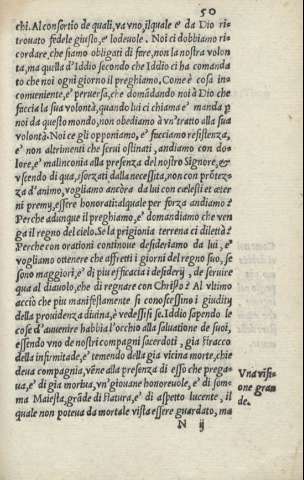 50
chi. Al consortio de quali, va vno, il quale e' da Dio ri-
trouato fedele giusto, e' lodeuole. Noi ci dobbiamo ri-
cordare, che siamo obligati di fare, non la nostra volon
ta, ma quella d'Iddio secondo che Iddio ci ha comanda
to che noi ogni giorno il preghiamo. Come è cosa in-
conueniente, e' peruersa, che domādando noi à Dio che
faccia la sua volontà, quando lui ci chiama e' manda p
noi da questo mondo, non obediamo à vn'tratto alla sua
volontà. Noi ce gli oponiamo, e' facciamo resistenza,
e' non altrimenti che serui ostinati, andiamo con do-
lore, e' malinconia alla presenza del nostro Signore, &
vscendo di qua, isforzati dalla necessità, non con prōtez-
za d'animo, vogliamo ancóra da lui con cœlesti et æter
ni premÿ, essere honorati: al quale per forza andiamo?
Perche adunque il preghiamo, e' domandiamo che ven
ga il regno del cielo. Se la prigionia terrena ci diletta?
Perche con orationi continoue desideriamo da lui, e'
vogliamo ottenere che affretti i giorni del regno suo, se
sono maggiori, e' di piu efficacia i desiderÿ, de seruire
qua al diauolo, che di regnare con Christo? Al vltimo
acciò che piu manifestamente si conoscessino i giuditÿ
della prouidenza diuina, è vedessi se Iddio sapendo le
cose d'auuenire habbia l'occhio alla saluatione de suoi,
essendo vno de nostri compagni sacerdoti, gia stracco
della infirmitade, e' temendo della gia vicina morte, chie
deua compagnia, vēne alla presenza di esso che prega-
ua, e' di gia moriua, vn'giouane honoreuole, e' di som-
ma Maiesta, grāde di statura, e' di aspetto lucente, il
quale non poteua da mortale vista essere guardato, ma
Vna visi-
one gran
de.
N ij